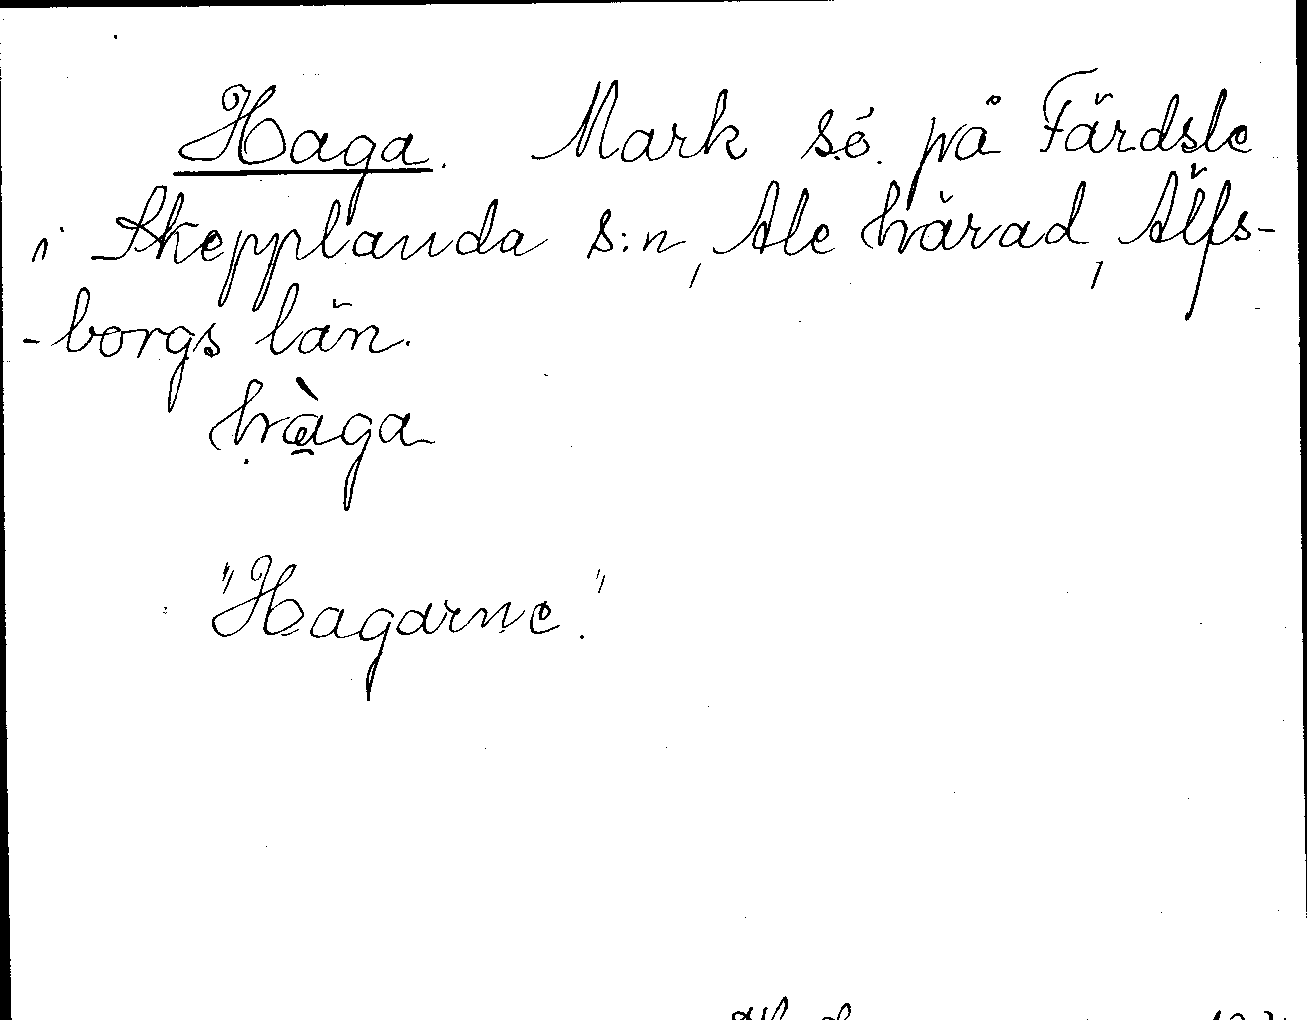 Haga. Mark sö. på Färdsle
i Skepplanda s:n, Ale härad, Älfs-
-borgs län.
hàga
"Hagarne."